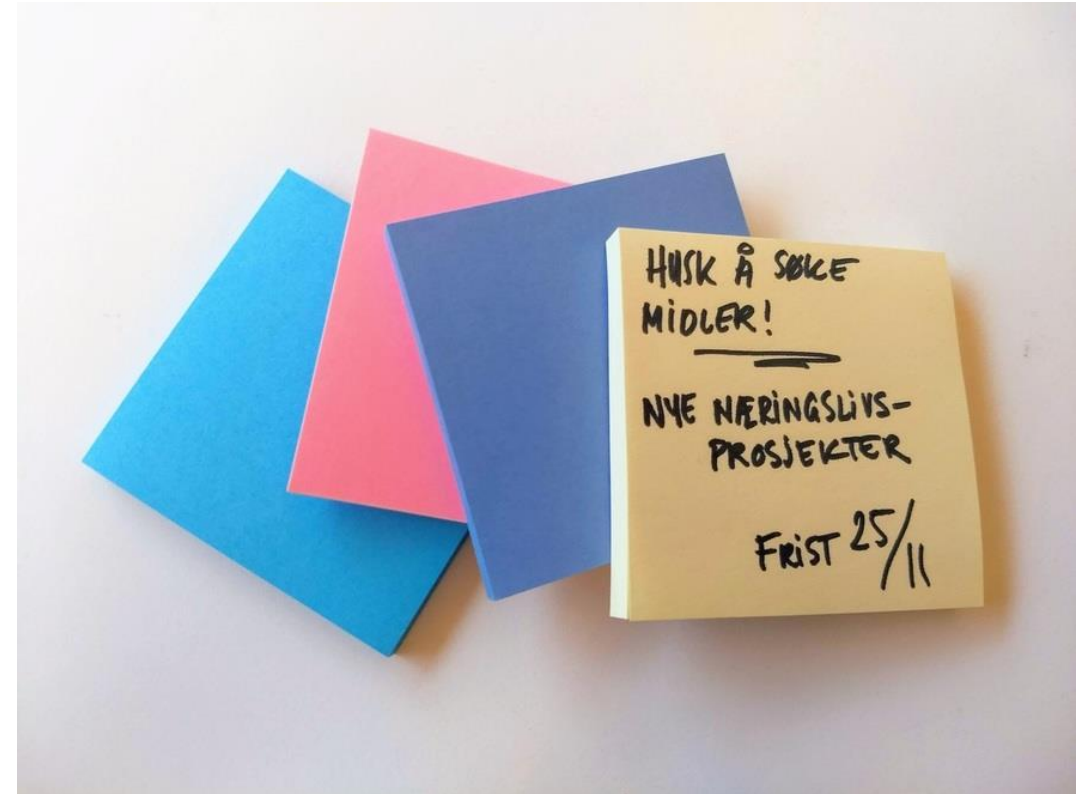 HUSK Å SØKE
MIDLER!
NYE NÆRINGSLIVS-
PROSJEKTER
FRIST 25/11